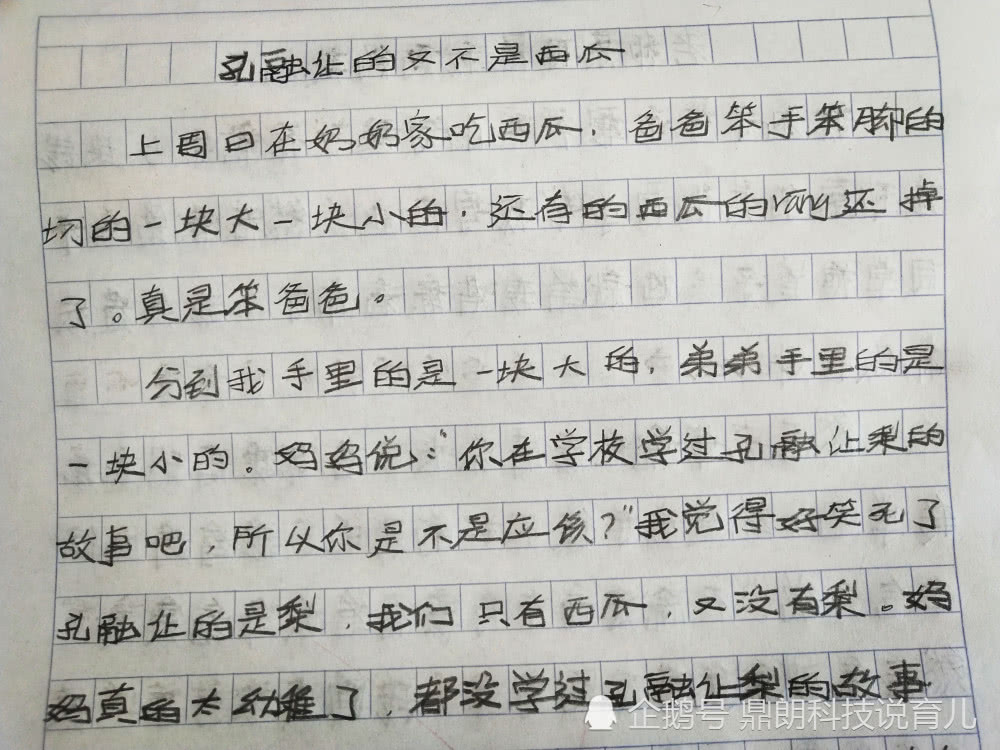 孔融让的又不是西瓜
上周日在奶奶家吃西瓜，爸爸笨手笨脚的
切的一块大一块小的，还有的西瓜的rang还掉
了。真是笨爸爸。
分到我手里的是一块大的，弟弟手里的是
一块小的。妈妈说：“你在学校学过孔融让梨的
故事吧，所以你是不是应该？”我觉得好笑死了
孔融让的是梨，我们只有西瓜，又没有梨。妈
妈真的太幼稚了，都没学过孔融让梨的故事
企鹅号 鼎朗科技说育儿